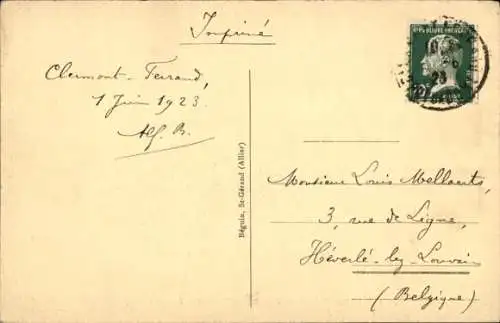 Imprimé
RÉPUBLIQUE FRANÇAISE
Clermont-Ferrand,
1 Juin 1923
Alf. B.
Béguin, St-Gérand (Allier)
Monsieur Louis Mellaerts,
3, rue de Ligne,
Héverlé-lez-Louvain
(Belgique)